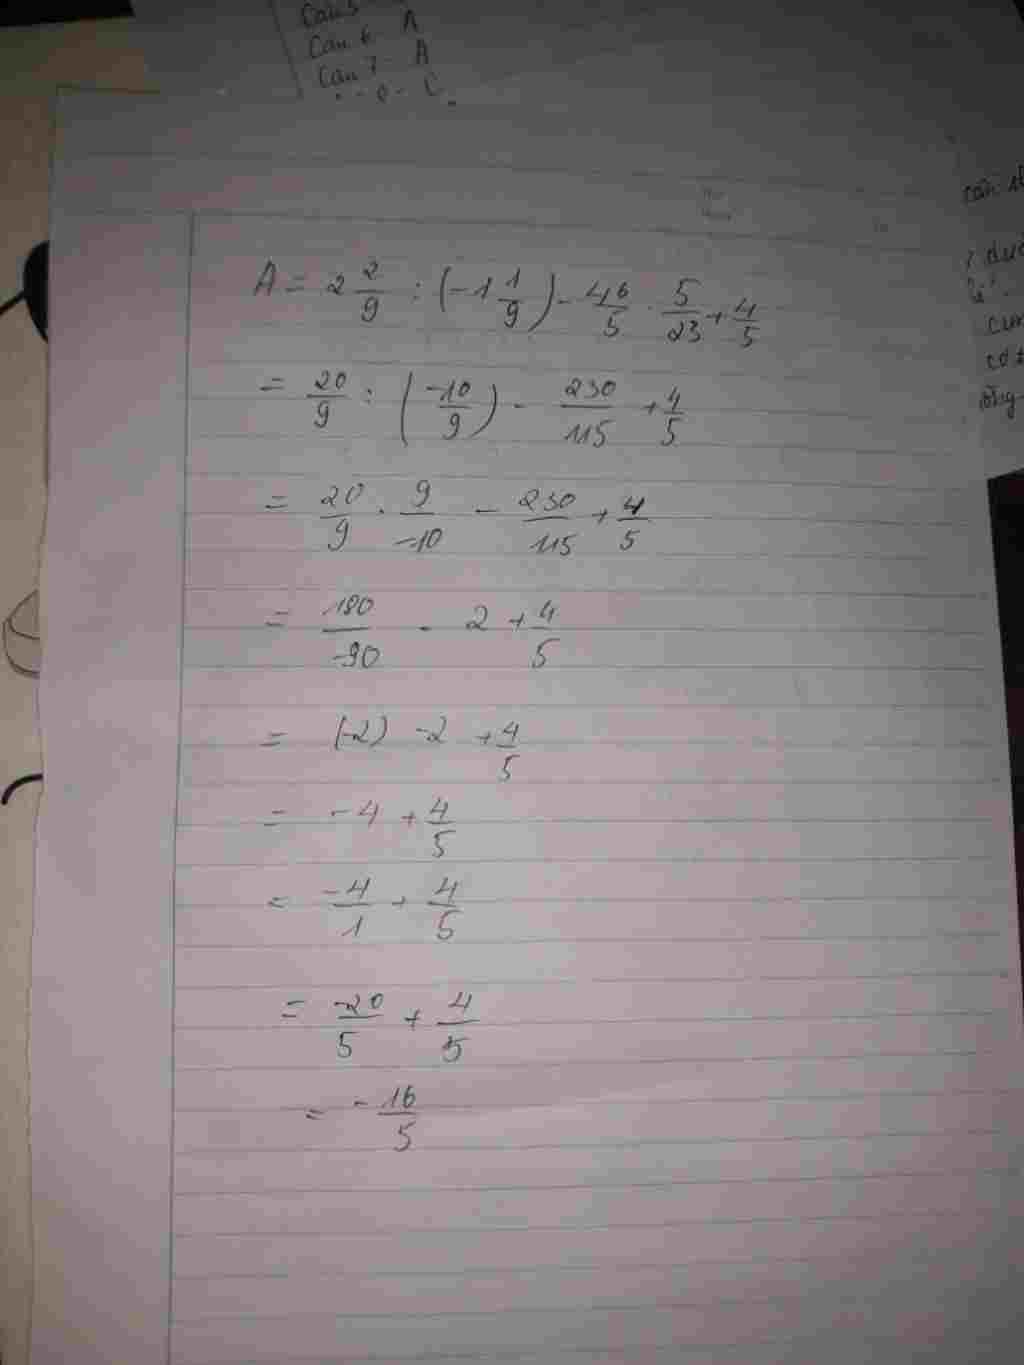 Câu 5
Câu 6 A
Câu 7 A
C
Câu
A = 2 2/9 : (-1 1/9) - 46/5 . 5/23 + 4/5
= 20/9 : (-10/9) - 230/115 + 4/5
= 20/9 . 9/-10 - 230/115 + 4/5
= 180/-90 - 2 + 4/5
= (-2) - 2 + 4/5
= -4 + 4/5
= -4/1 + 4/5
= -20/5 + 4/5
= -16/5